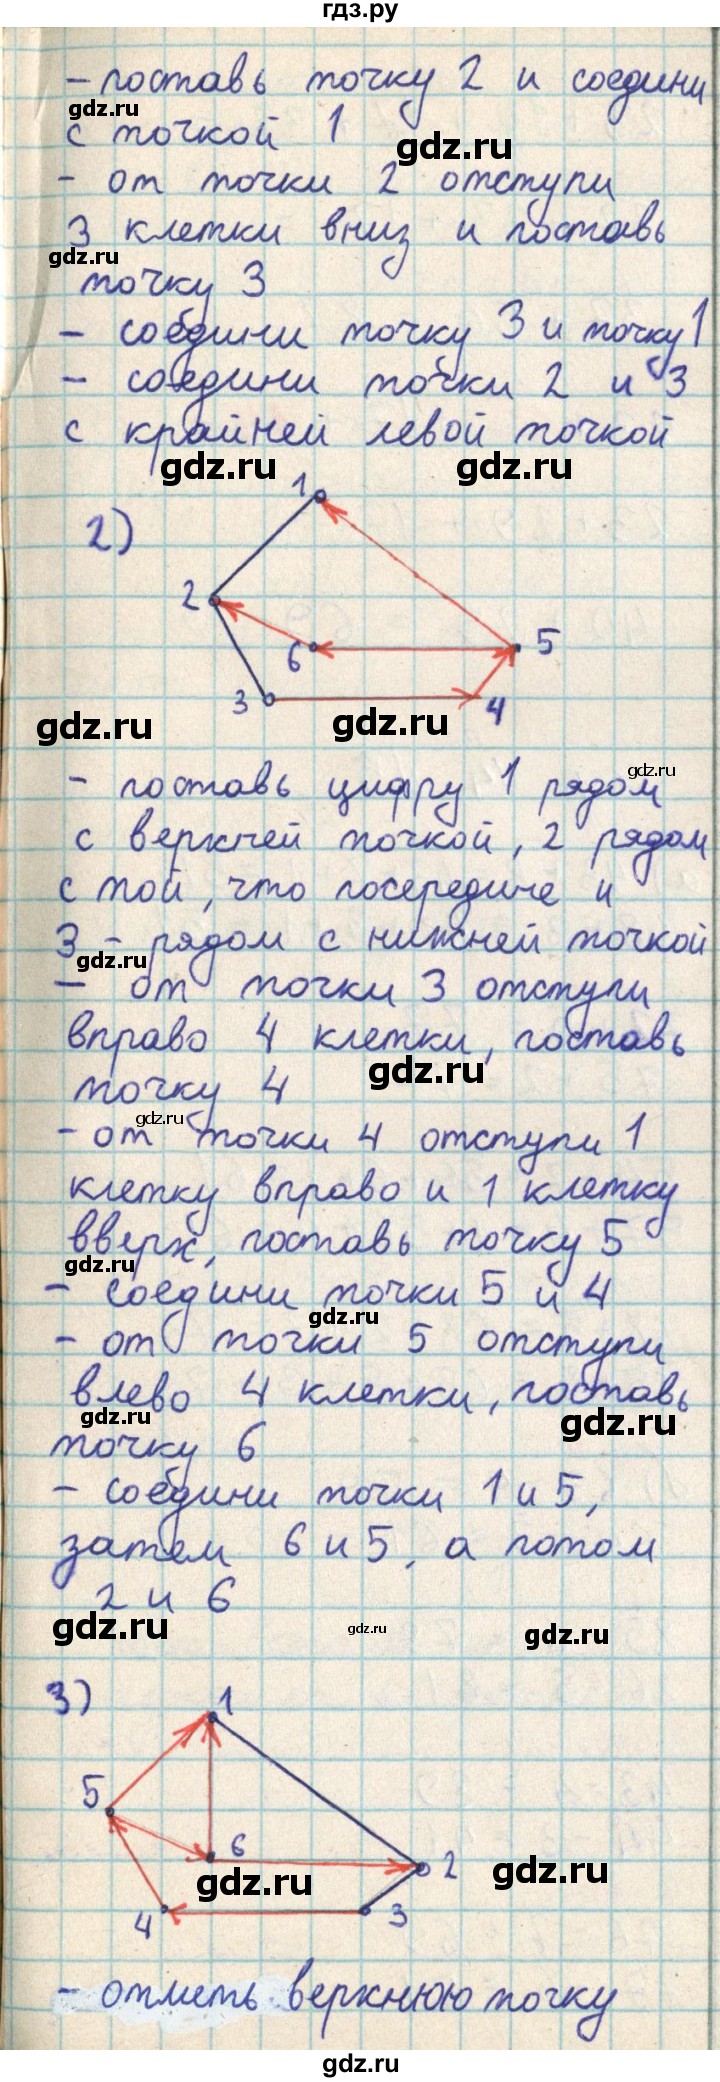 гдз.ру
- поставь точку 2 и соедини
gdz.ru
с точкой 1
gdz.ru
- от точки 2 отступи
3 клетки вниз и поставь
gdz.ru
точку 3
- соедини точку 3 и точку 1
- соедини точки 2 и 3
с крайней левой точкой
gdz.ru gdz.ru
2)
1
2
6
5
3
4
gdz.ru gdz.ru
- поставь цифру 1 рядом
gdz.ru
с верхней точкой, 2 рядом
с той, что посередине и
3 - рядом с нижней точкой
gdz.ru
- от точки 3 отступи
вправо 4 клетки, поставь
gdz.ru
точку 4
gdz.ru
- от точки 4 отступи 1
клетку вправо и 1 клетку
вверх, поставь точку 5
gdz.ru
- соедини точки 5 и 4
gdz.ru
- от точки 5 отступи
влево 4 клетки, поставь
gdz.ru gdz.ru
точку 6
- соедини точки 1 и 5,
затем 6 и 5, а потом
2 и 6
gdz.ru gdz.ru gdz.ru
3)
1
5
6
2
gdz.ru gdz.ru
4
3
- отметь верхнюю точку
gdz.ru